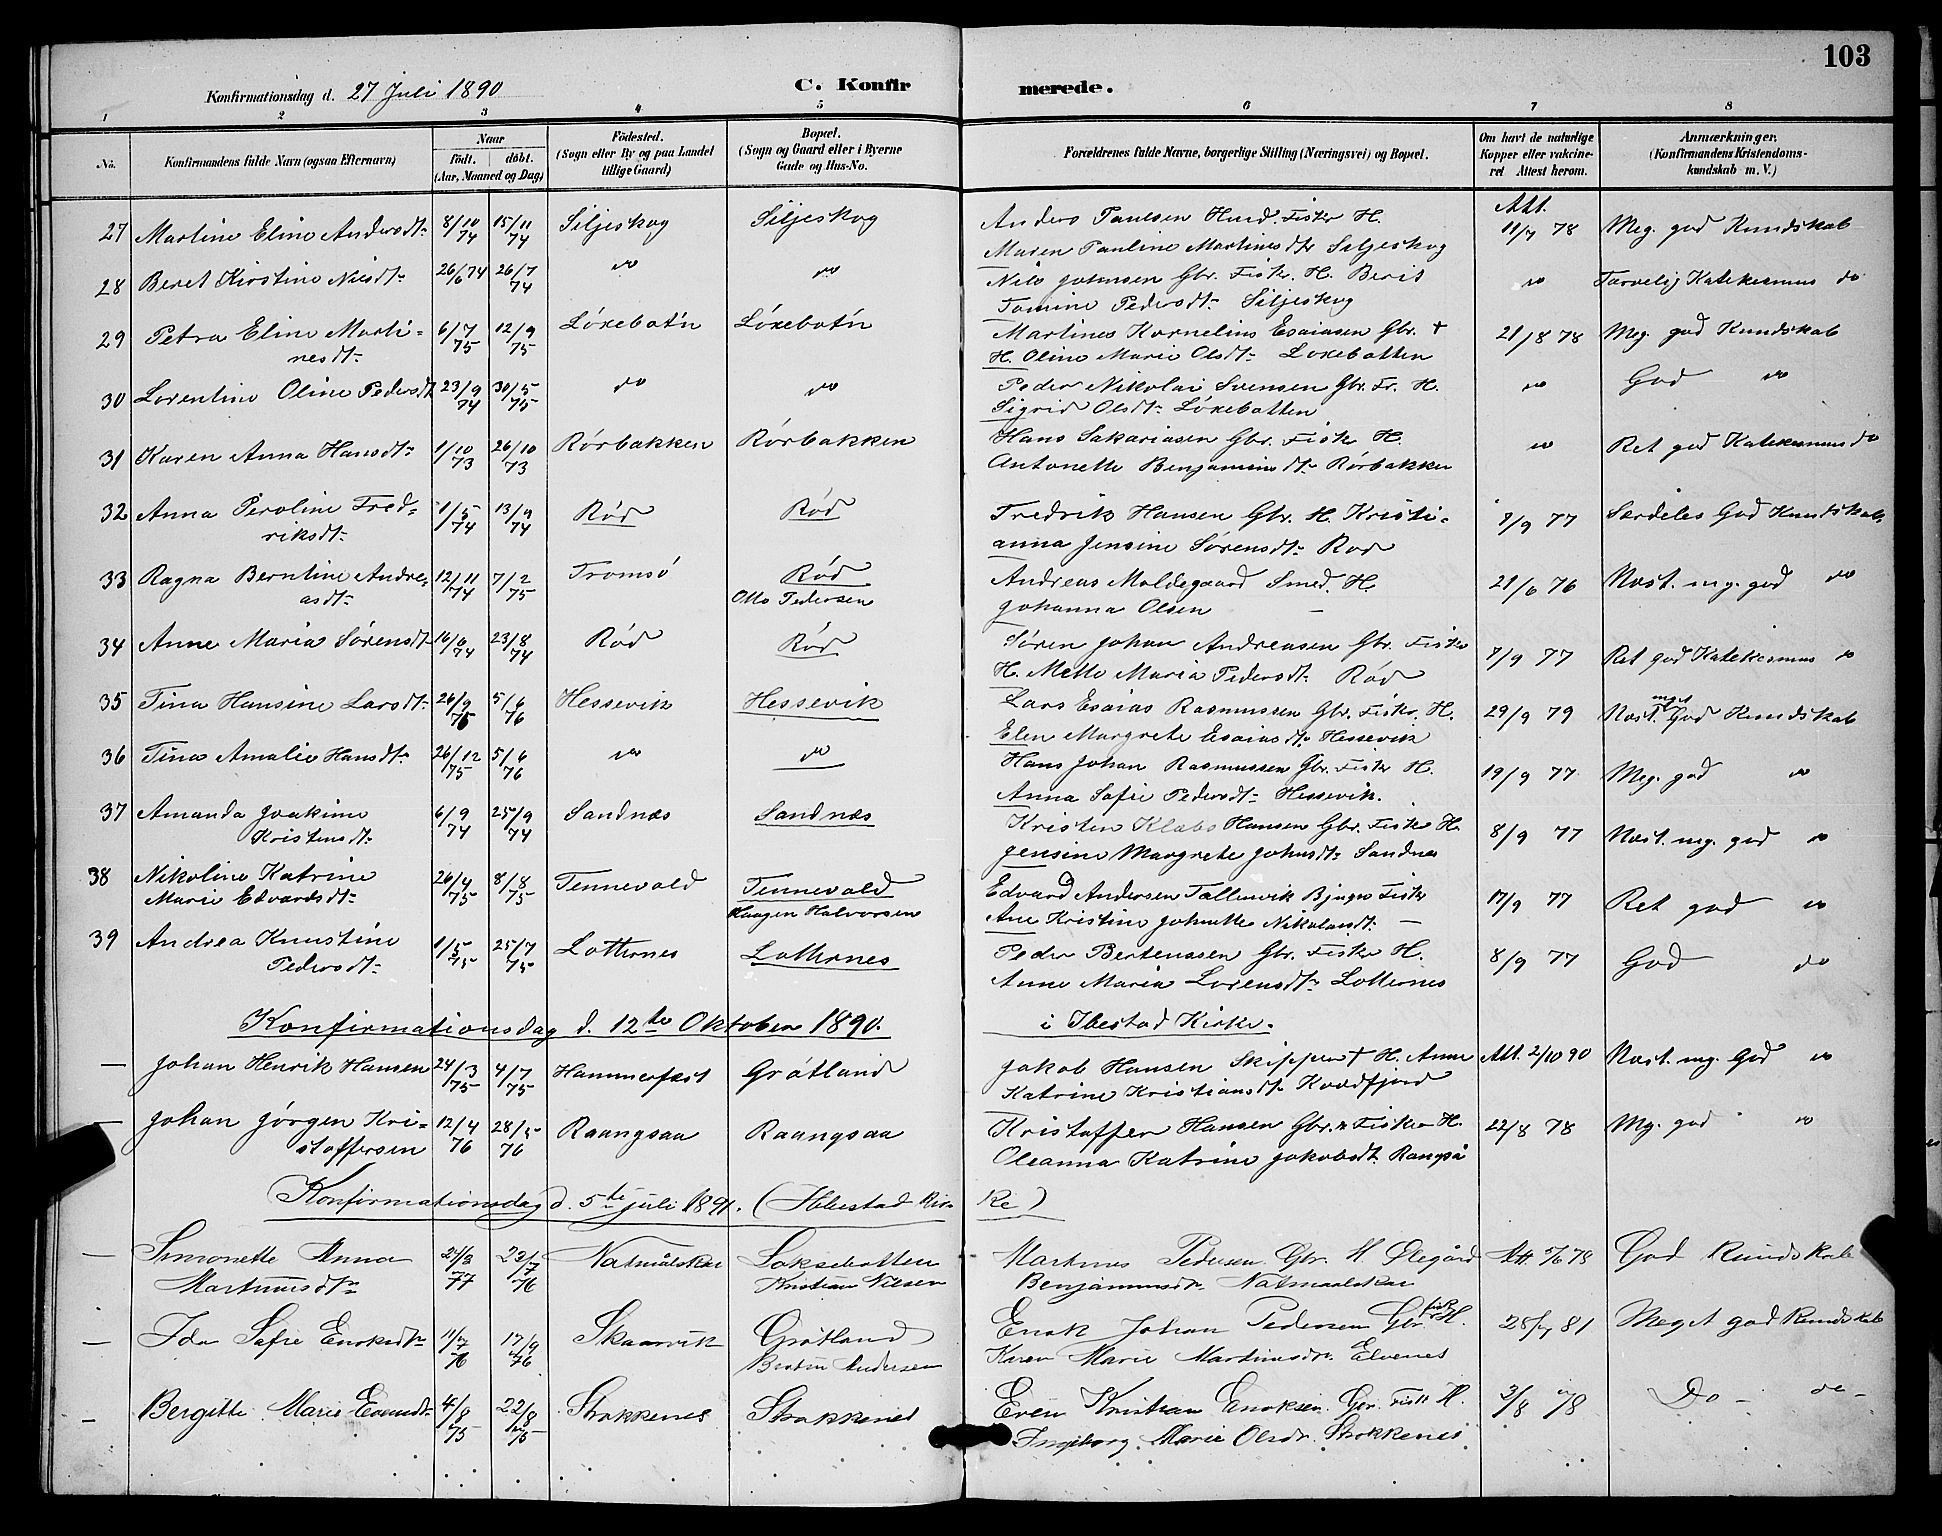 103
Konfirmationsdag d. 27 Juli 1890 C. Konfirmerede.
1 2 3 4 5 6 7 8
No. Konfirmandens fulde Navn (ogsaa Efternavn) Naar født. døbt. (Aar, Maaned og Dag) Fødested. (Sogn eller By og paa Landet tillige Gaard) Bopæl. (Sogn og Gaard eller i Byerne Gade og Hus-No. Forældrenes fulde Navne, borgerlige Stilling (Næringsvei) og Bopæl. Om havt de naturlige Kopper eller vakcineret Attest herom. Anmærkninger. (Konfirmandens Kristendomskundskab m. V.)
27 Martine Eline Andersdt. 8/10 74 15/11 74 Siljeskog Siljeskog Anders Paulsen Hmd Fisker H. Att. 11/7 78 Meg. god Kundskab
Maren Pauline Martinesdtr Siljeskog
28 Beret Kirstine Nilsdt. 26/6 74 26/7 74 do do Nils Johnsen Gbr. Fisk. H. Beris do Tarvelig Katekesmus do
Tomine Pedersdt. Siljeskog
29 Petra Eline Marti- 6/7 75 12/9 75 Løxebotn Løxebotn Martines Kornelius Esaiasen Gbr. + 21/8 78 Meg. god Kundskab
nesdt. H. Oline Marie Olsdt. Loxebotten
30 Lorentine Oline Pedersdt 23/9 74 30/5 75 do do Peder Nikolai Svensen Gbr. Fr. H. do God do
Sigrid Olsdt. Løxebotten
31 Karen Anna Hansdt. 1/10 73 26/10 73 Rørbakken Rørbakken Hans Sakariasen Gbr. Fisker H. do Ret god Katekesmus do
Antonette Benjaminsdt. Rørbakken
32 Anna Peroline Fred- 1/5 74 13/9 74 Rød Rød Fredrik Hansen Gbr. H. Kristi- 7/9 77 Særdeles God Kundskab.
riksdt. anna Jensine Sørensdt. Rød
33 Ragna Berntine Andre- 12/11 74 7/2 75 Tromsø Rød Andreas Moldegaard Smed. H. 21/6 76 Næst. mg. god do
asdt. Otto Pedersen Johanna Olsen —
34 Anne Maria Sørensdt. 16/6 74 23/8 74 Rød Rød Søren Johan Andreasen Gbr. Fisker 7/9 77 Ret god Katekesmus do
H. Mette Maria Pedersdt. Rød
35 Tina Hansine Larsdt. 26/9 75 5/6 76 Hessevik Hessevik Lars Esaias Rasmussen Gbr. Fisker. H. 29/9 79 Næst. meget God Kundskab
Elen Margrete Esaiasdt. Hessevik
36 Tina Amalie Hansdt. 26/12 75 5/6 76 do do Hans Johan Rasmussen Gbr. Fisker H. 19/9 77 Meg. god do
Anna Sofie Pedersdt. Hessevik.
37 Amanda Joakime 6/9 74 25/9 74 Sandnæs Sandnæs Kristen Klabo Hansen Gbr. Fisker H. 8/9 77 Næst. mg. god do
Kristensdt. Jensine Margrete Johnsdt. Sandnæs
38 Nikoline Katrine 26/4 75 8/8 75 Tennevold Tennevold Edvard Andersen Tallevik Fisker 17/9 77 Ret god do
Marie Edvardsdt. Haagen Halvorsen Ane Kristine Johnette Nikolaisdt. —
39 Andrea Knustine 1/5 75 25/7 75 Lotternes Lotternes Peder Bertenssen Gbr. Fisker H. 8/9 77 God do
Pedersdt. Anne Maria Lorensdt. Lotternes
Konfirmationsdag d. 12te Oktober 1890. i Ibestad Kirke.
— Johan Henrik Hansen 24/3 75 4/7 75 Hammerfest Grøtland Jakob Hansen Skipper + H. Anne Att. 2/10 90 Næst. mg. God do
Katrine Kristiansdt. Kvædfjord
— Johan Jørgen Kri- 12/4 76 28/5 76 Raangsaa Raangsaa Kristoffer Hansen Gbr. & Fisker H. 22/8 78 Mg. god do
stoffersen Oleanna Katrine Jakobsdt. Rangså
Konfirmationsdag d. 5te Juli 1891. (Ibestad Kirke)
— Simonette Anna 77 23/7 76 Natmålskar Løksebotten Martines Pedersen Gbr. H. Olegård Att. 5/6 78 God Kundskab
Martinusdtr. Kristian Nilsen Benjaminsdtr. Natmaalskar
— Ida Sofie Enoksdtr 11/7 76 17/9 76 Skaarvik Grøtland Enok Johan Pedersen Gbr. fisk. H. 28/7 81 Meget god Kundskab
Berten Andersen Karen Marie Martinusdtr. Elvenes
— Bergitte Marie Evensdtr 4/8 75 22/8 75 Stokkenes Stokkenes Even Kristian Enoksen Gbr. Fisk H. 3/8 78 Do — do —
Ingeborg Marie Olsdtr. Stokkenes